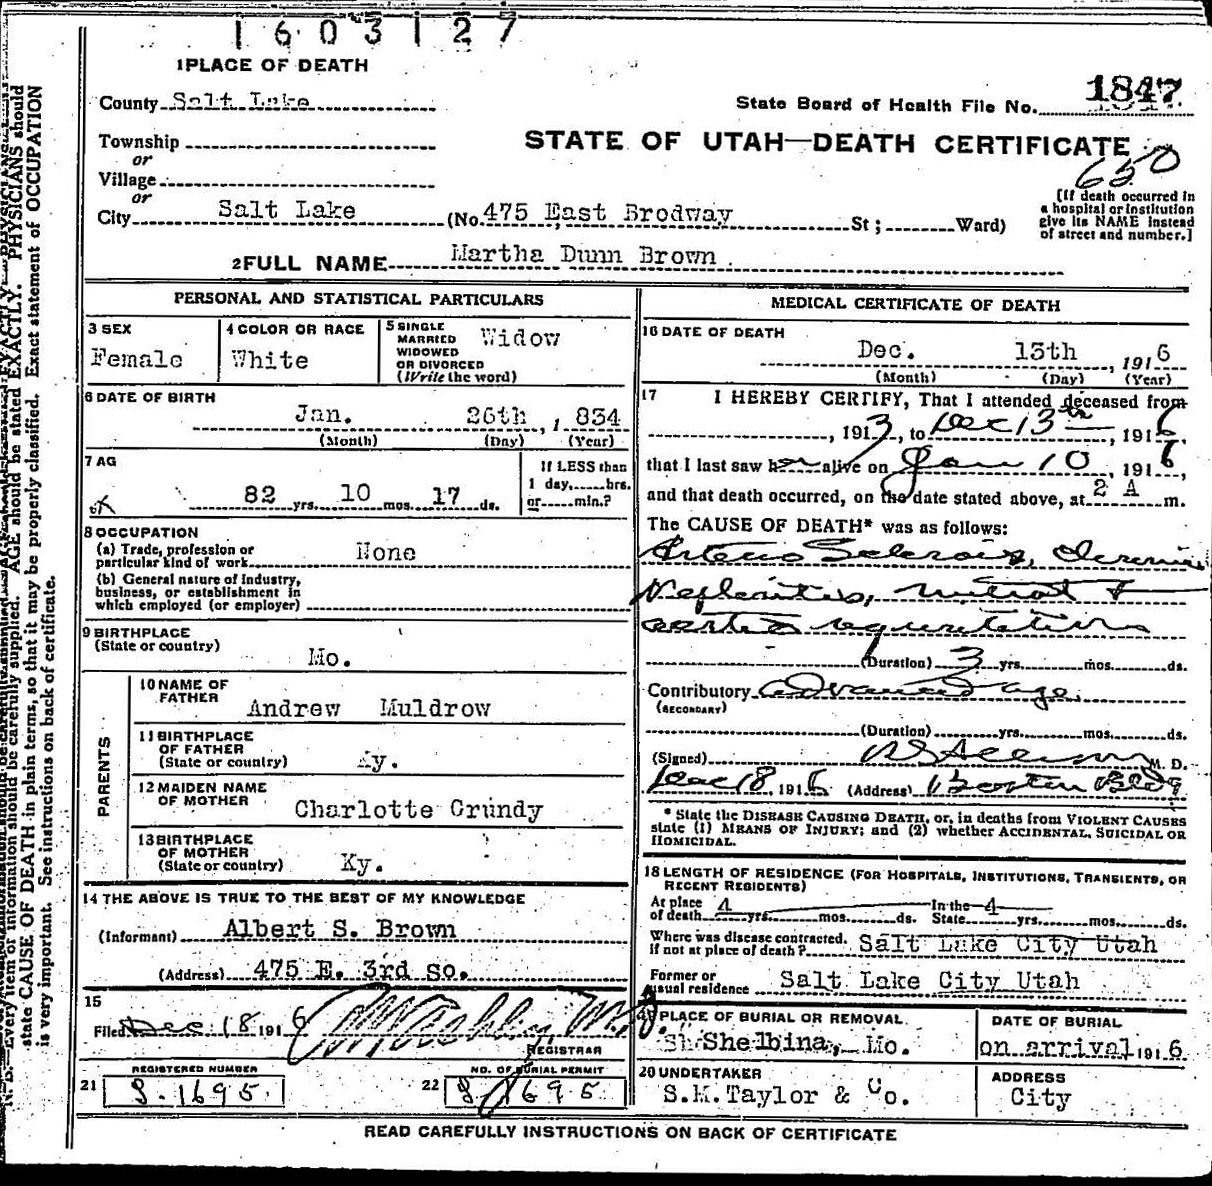 1603127
1 PLACE OF DEATH
County Salt Lake
State Board of Health File No. 1847
Township
or
STATE OF UTAH—DEATH CERTIFICATE
650
Village
or
City Salt Lake (No. 475 East Brodway St ; Ward)
[If death occurred in
a hospital or institution
give its NAME instead
of street and number.]
2 FULL NAME Martha Dunn Brown
PERSONAL AND STATISTICAL PARTICULARS
3 SEX
Female
4 COLOR OR RACE
White
5 SINGLE
MARRIED
WIDOWED
OR DIVORCED
(Write the word)
Widow
6 DATE OF BIRTH
Jan. 26th , 834
(Month) (Day) (Year)
7 AG
82 yrs. 10 mos. 17 ds.
If LESS than
1 day, hrs.
or min.?
8 OCCUPATION
(a) Trade, profession or
particular kind of work None
(b) General nature of Industry,
business, or establishment in
which employed (or employer)
9 BIRTHPLACE
(State or country)
Mo.
PARENTS
10 NAME OF
FATHER
Andrew Muldrow
11 BIRTHPLACE
OF FATHER
(State or country) Ky.
12 MAIDEN NAME
OF MOTHER
Charlotte Grundy
13 BIRTHPLACE
OF MOTHER
(State or country) Ky.
14 THE ABOVE IS TRUE TO THE BEST OF MY KNOWLEDGE
(Informant) Albert S. Brown
(Address) 475 E. 3rd so.
15
Filed Dec 18 1916
REGISTRAR
REGISTERED NUMBER
21 S. 1695
NO. OF BURIAL PERMIT
22 S 1695
MEDICAL CERTIFICATE OF DEATH
16 DATE OF DEATH
Dec. 13th , 1916
(Month) (Day) (Year)
17 I HEREBY CERTIFY, That I attended deceased from
, 1913, to Dec 13th , 1916,
that I last saw her alive on Jan 10 , 1916,
and that death occurred, on the date stated above, at 2 A m.
The CAUSE OF DEATH* was as follows:
Arterio Sclerosis, Chronic
Nephritis, mitral +
aortic regurgitation
(Duration) 3 yrs. mos. ds.
Contributory advanced age
(SECONDARY)
(Duration) yrs. mos. ds.
(Signed) M. D.
Dec 18, 1916 (Address) Boston Bldg
* State the DISEASE CAUSING DEATH, or, in deaths from VIOLENT CAUSES
state (1) MEANS OF INJURY; and (2) whether ACCIDENTAL, SUICIDAL OR
HOMICIDAL.
18 LENGTH OF RESIDENCE (FOR HOSPITALS, INSTITUTIONS, TRANSIENTS, OR
RECENT RESIDENTS)
At place
of death 4 yrs. mos. ds. In the
State 4 yrs. mos. ds.
Where was disease contracted.
if not at place of death? Salt Lake City Utah
Former or
usual residence Salt Lake City Utah
19 PLACE OF BURIAL OR REMOVAL
Sh Shelbina, Mo.
DATE OF BURIAL
on arrival 1916
20 UNDERTAKER
S.M. Taylor & Co.
ADDRESS
City
READ CAREFULLY INSTRUCTIONS ON BACK OF CERTIFICATE
N. B.—Every item of information should be carefully supplied. AGE should be stated EXACTLY. PHYSICIANS should
state CAUSE OF DEATH in plain terms, so that it may be properly classified. Exact statement of OCCUPATION
is very important. See instructions on back of certificate.